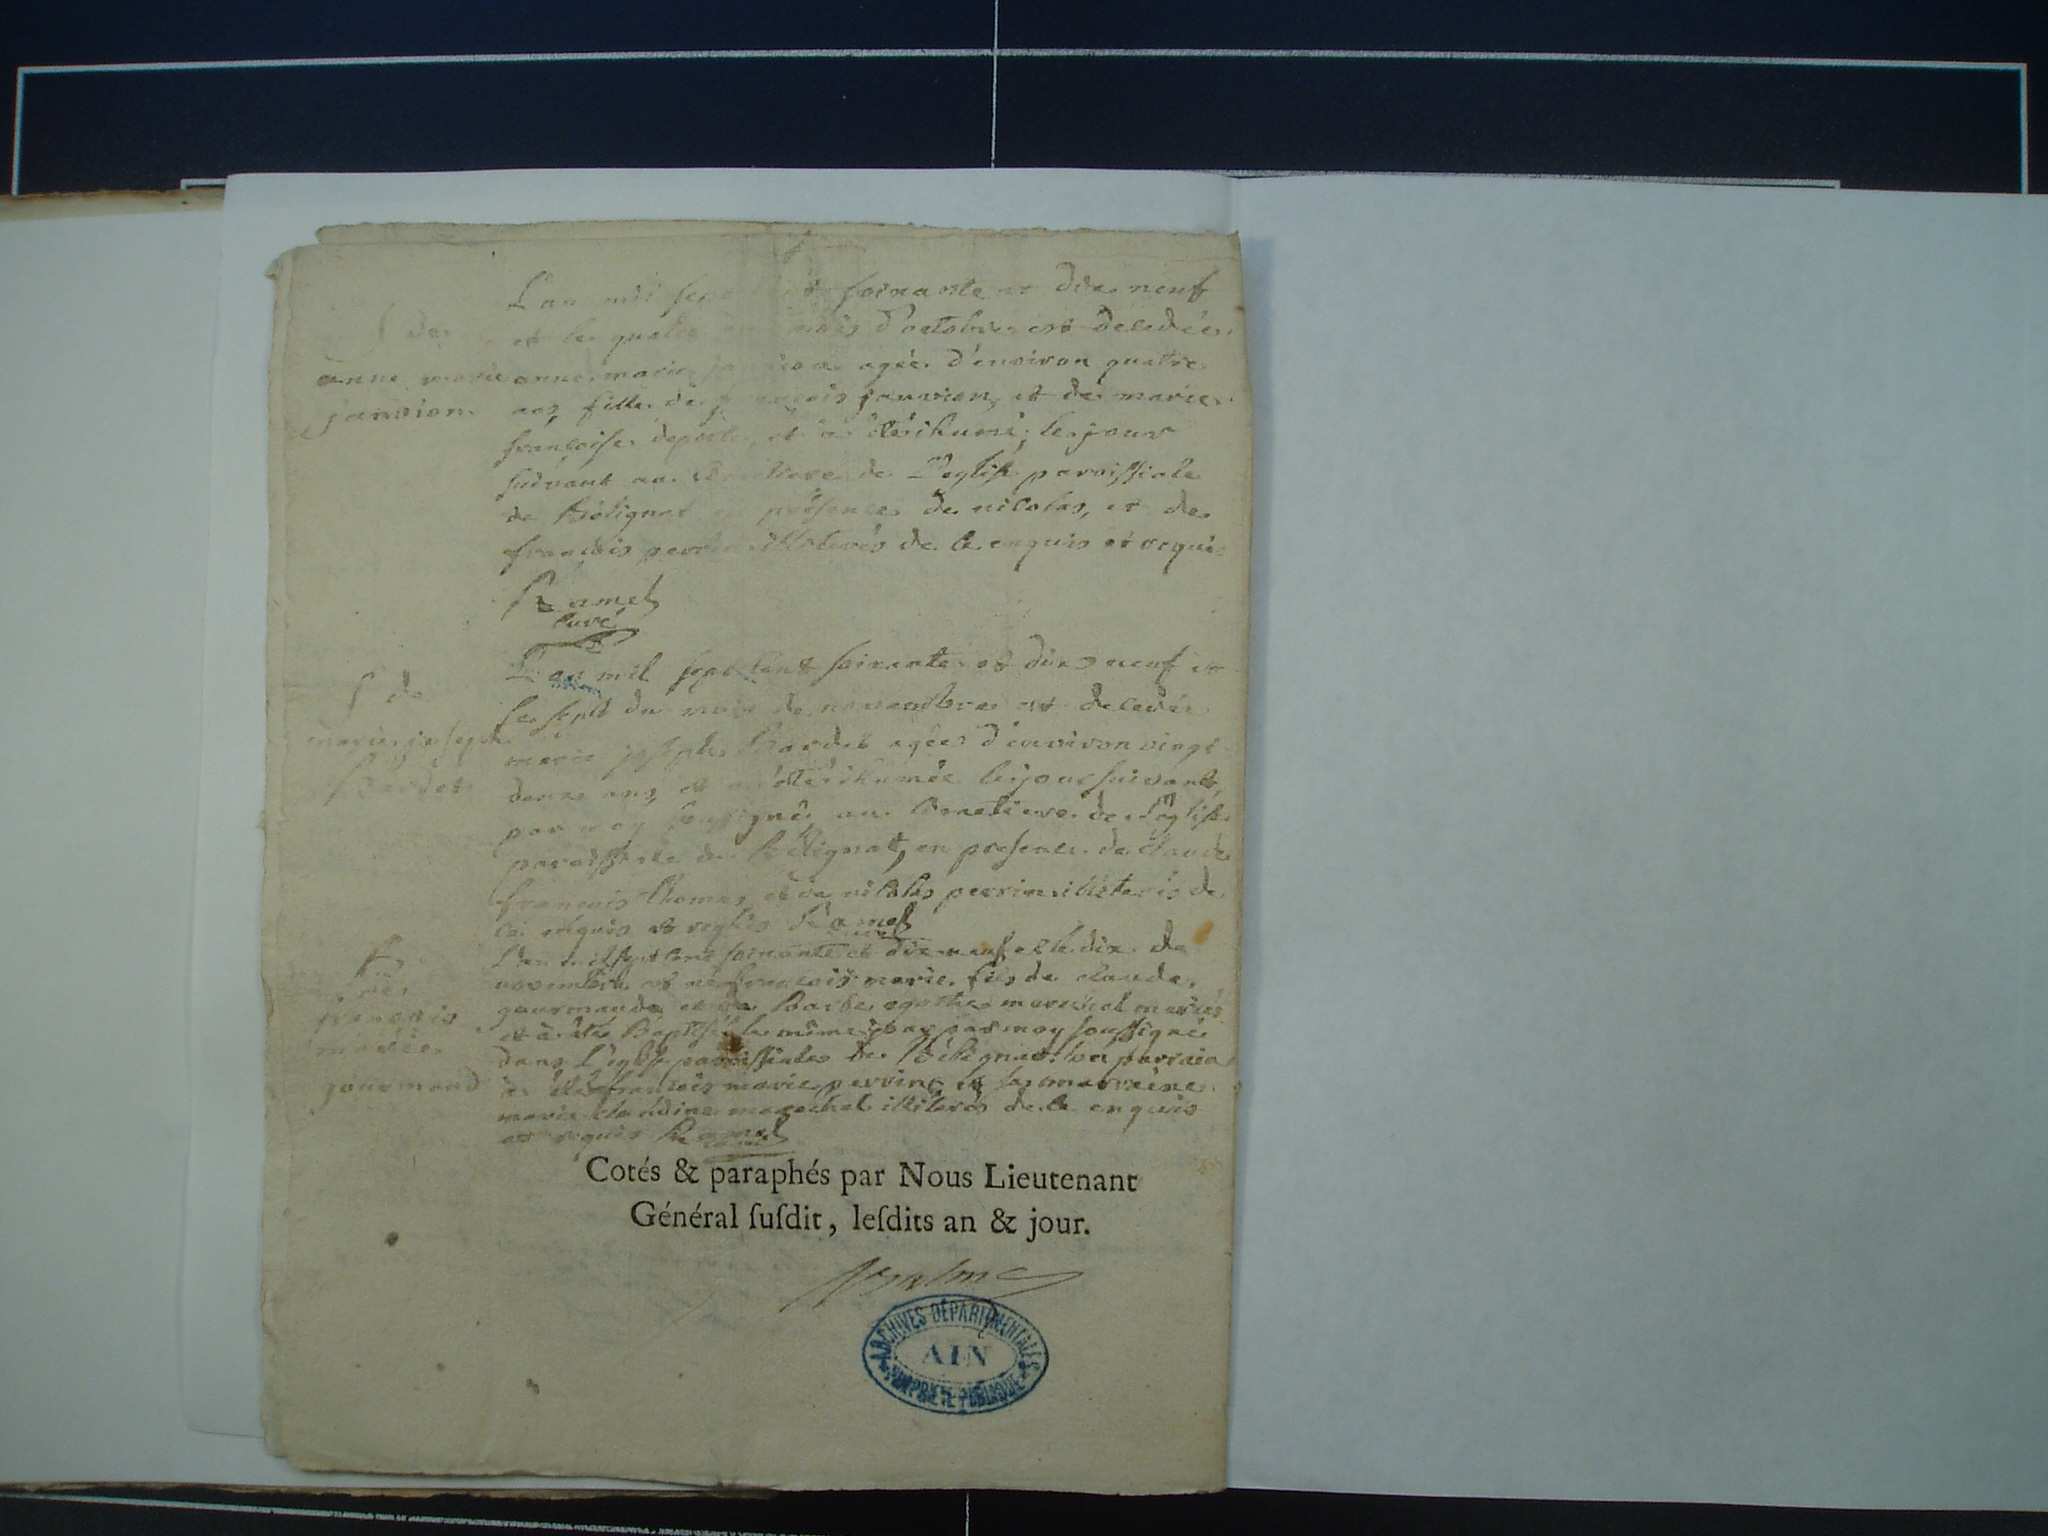 L'an mil sept cent soixante et dix neuf
et le quatre du mois d'octobre est decedée
anne marie janvion agée d'environ quatre
ans fille de françois janvion, et de marie
françoise et a été ihumé; le jour
suivant au cimetiere de l'eglise paroissiale
de Béligna en présence de nicolas, et de
françois perrin illiterés de ce enquis et requis
Ramel
curé
S de
anne marie
janvion
L'an mil sept cent soixante et dix neuf et
le sept du mois de novembre est decedée
marie joseph Bardet agée d'environ vingt
deux ans, et a été ihumée le jour suivant,
par moy soussigné au cimetiere de l'eglise
paroissiale de Bélignat, en presence de claude
françois thomas et de nicolas perrin illiterés de
ce enquis et requis Ramel
S de
marie joseph
Bardet
L'an mil sept cent soixante et dix neuf et le dix de
novembre est né françois marie fils de claude
gourmand et de Barbe agathe marechal mariés
et a été Baptisé le même jour par moy soussigné
dans l'eglise paroissiale de Bélignat. son parrain
a été françois marie perrin et la marraine
marie claudine marechal illiterés de ce enquis
et requis Ramel
françois
marie
gourmand
Cotés & paraphés par Nous Lieutenant
Général ſuſdit, leſdits an & jour.
ARCHIVES DÉPARTEMENTALES
AIN
PROPRIÉTÉ PUBLIQUE